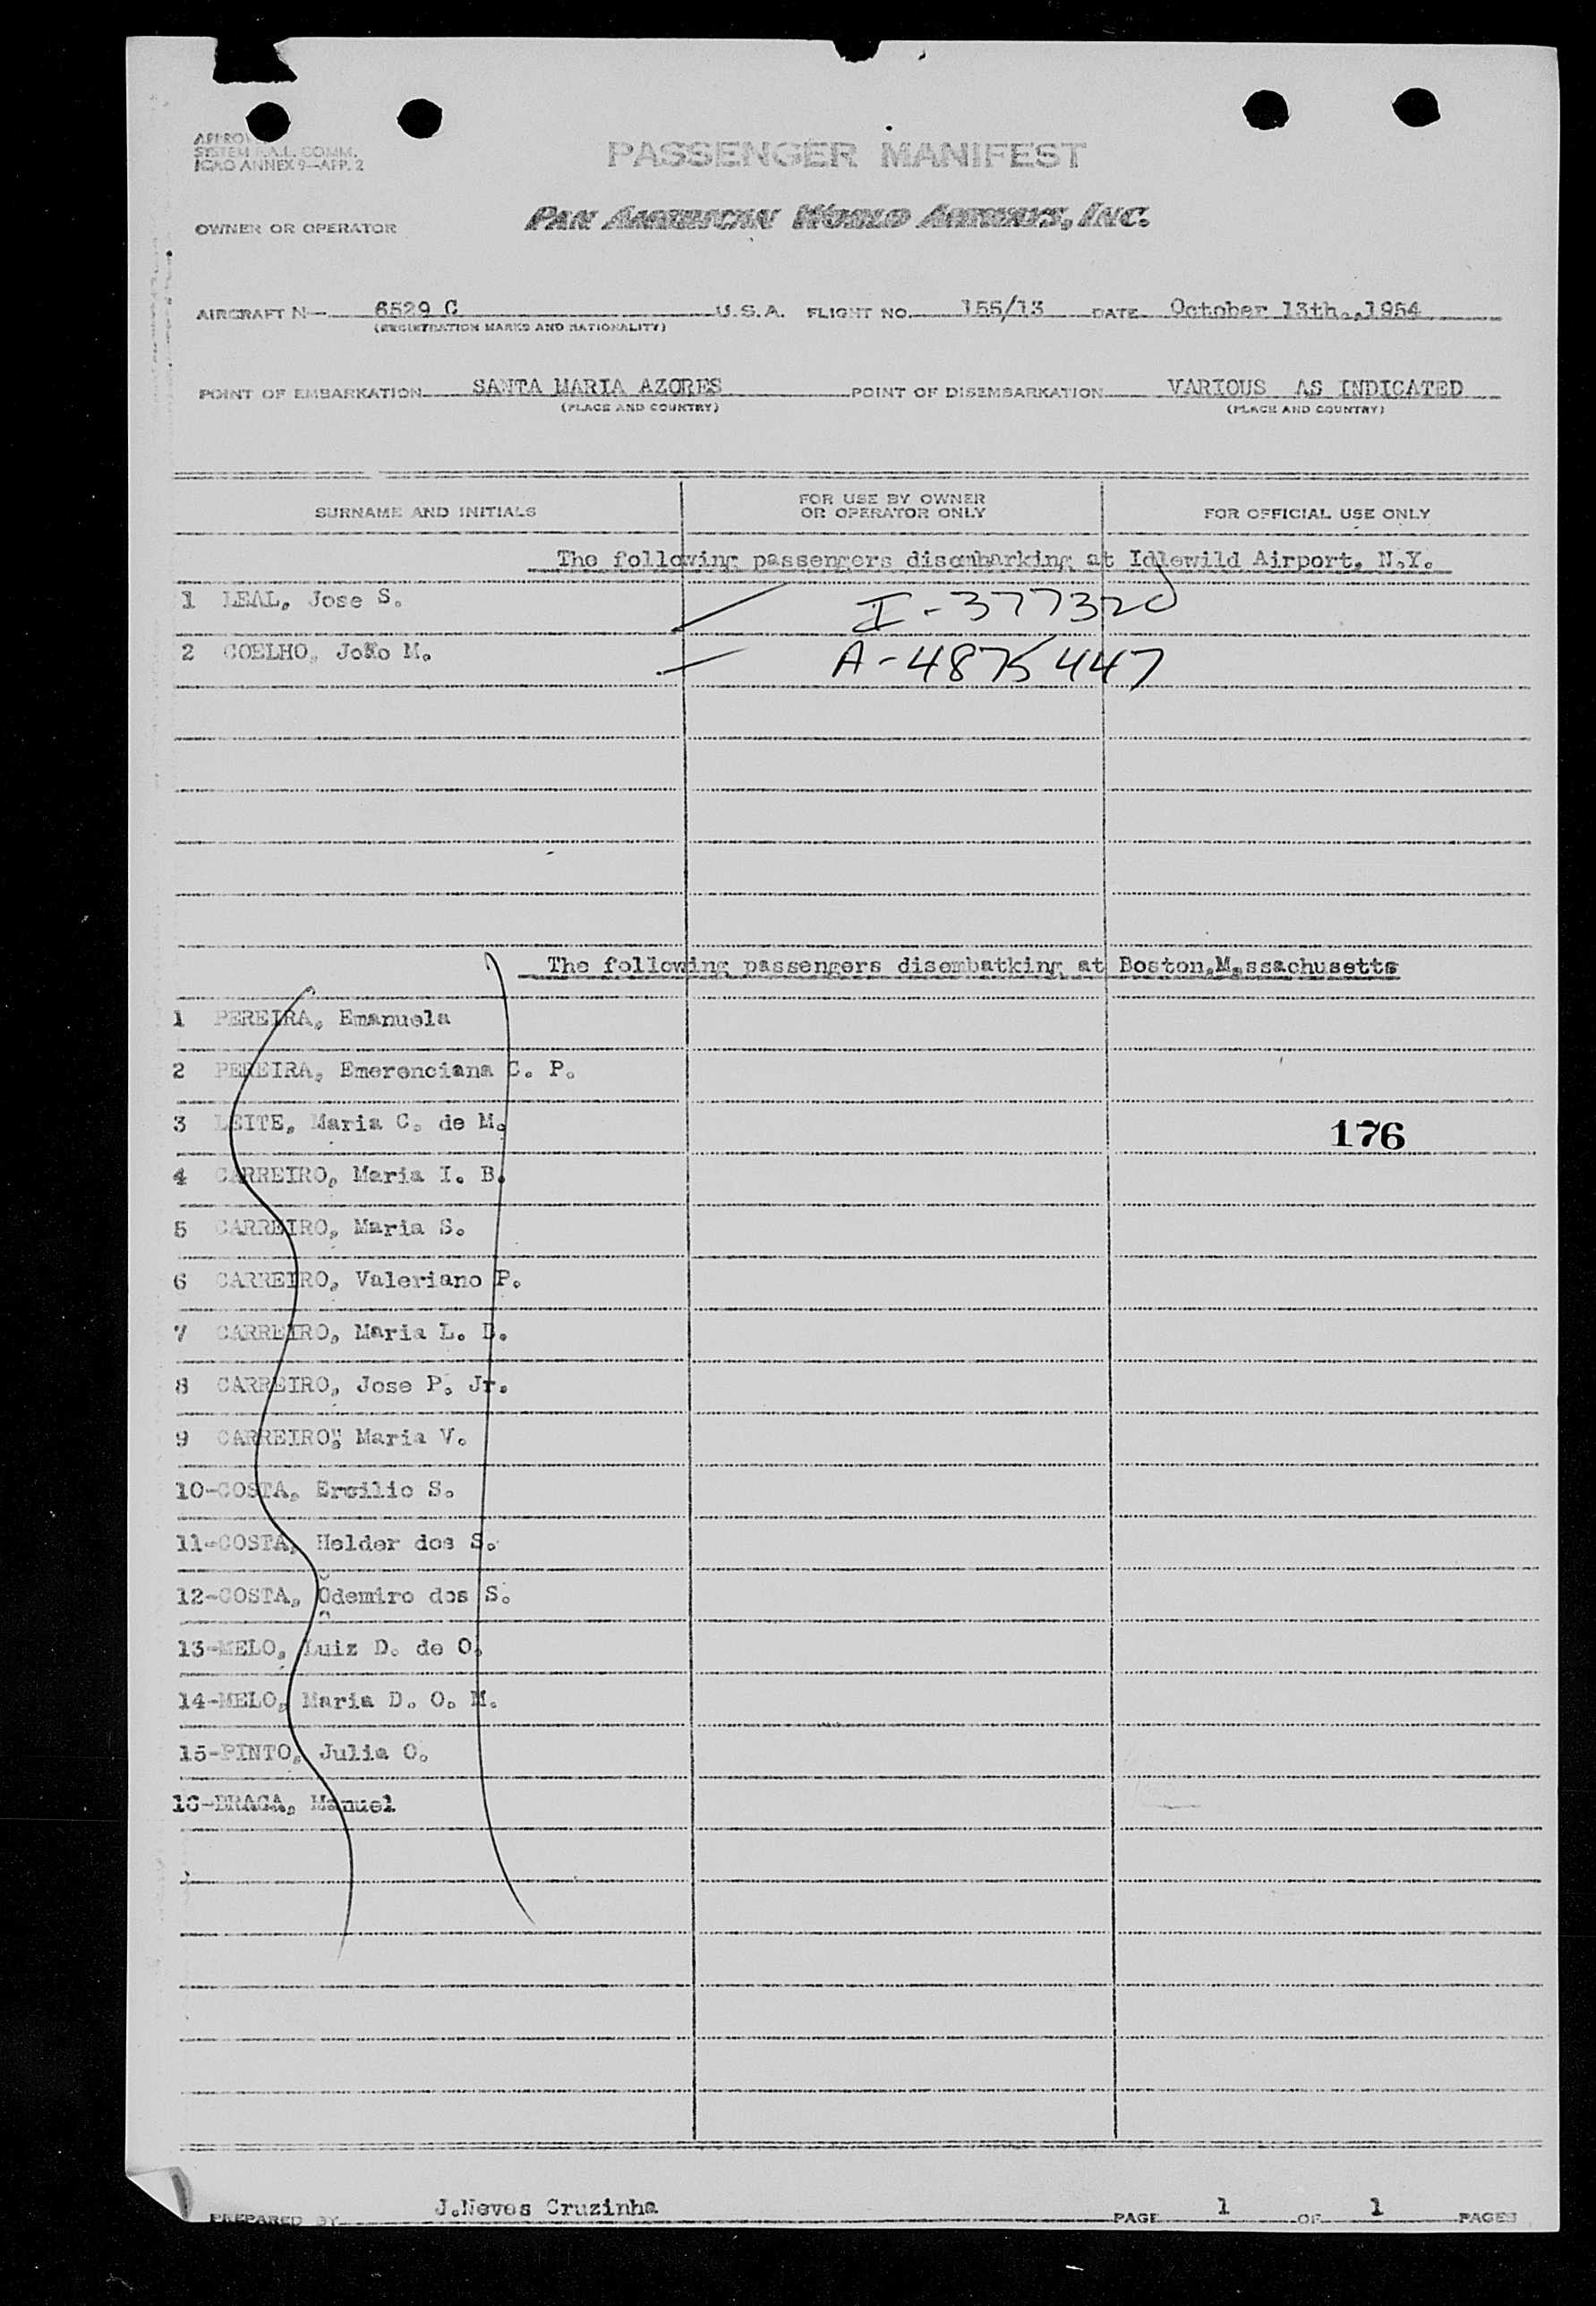 SYSTEM F.A.L. COMM.
ICAO ANNEX 9—APP. 2
PASSENGER MANIFEST
OWNER OR OPERATOR PAN AMERICAN WORLD AIRWAYS, INC.
AIRCRAFT N— 6529 C U.S.A. FLIGHT NO. 155/13 DATE October 13th.,1954
(REGISTRATION MARKS AND NATIONALITY)
POINT OF EMBARKATION SANTA MARIA AZORES POINT OF DISEMBARKATION VARIOUS AS INDICATED
(PLACE AND COUNTRY) (PLACE AND COUNTRY)
SURNAME AND INITIALS FOR USE BY OWNER OR OPERATOR ONLY FOR OFFICIAL USE ONLY
The following passengers disembarking at Idlewild Airport, N.Y.
1 LEAL, Jose S. I-377320
2 COELHO, João M. A-4875447
The following passengers disembatking at Boston,Massachusetts
1 PEREIRA, Emanuela
2 PEREIRA, Emerenciana C. P.
3 LEITE, Maria C. de M. 176
4 CARREIRO, Maria I. B.
5 CARREIRO, Maria S.
6 CARREIRO, Valeriano P.
7 CARREIRO, Maria L. D.
8 CARREIRO, Jose P. Jr.
9 CARREIRO, Maria V.
10-COSTA, Ersilio S.
11-COSTA, Helder dos S.
12-COSTA, Odemiro dos S.
13-MELO, Luiz D. de O.
14-MELO, Maria D. O. M.
15-PINTO, Julia O.
16-BRAGA, Manuel
PREPARED BY J.Neves Cruzinha PAGE 1 OF 1 PAGES